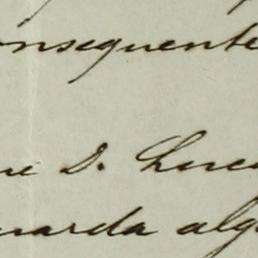 onsequente
ne D. Luc
uarda alg